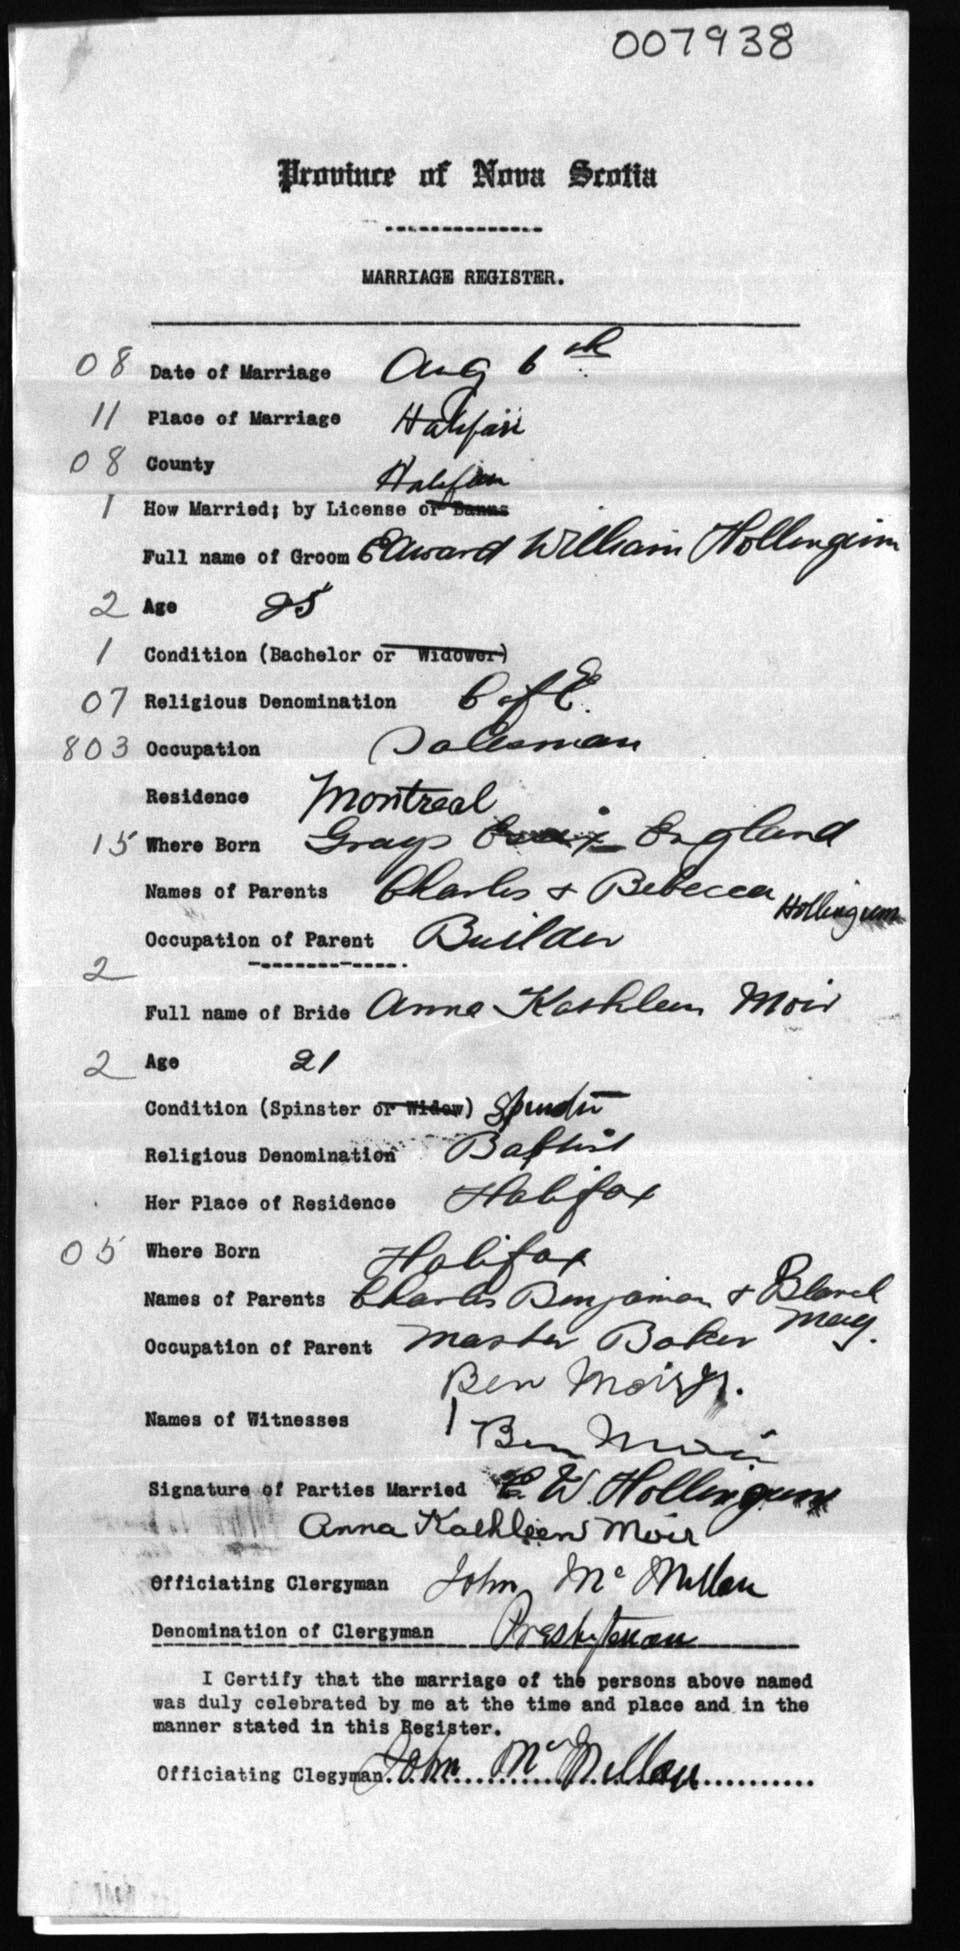 007938
Province of Nova Scotia
MARRIAGE REGISTER.
08 Date of Marriage Aug 6th
11 Place of Marriage Halifax
08 County Halifax
1 How Married; by License or Banns
Full name of Groom Edward William Hollingum
2 Age 25
1 Condition (Bachelor or Widower)
07 Religious Denomination C of E.
803 Occupation Salesman
Residence Montreal
15 Where Born Grays Essex England
Names of Parents Charles & Rebecca Hollingum
Occupation of Parent Builder
2
Full name of Bride Anna Kathleen Moir
2 Age 21
Condition (Spinster or Widow) Spinster
Religious Denomination Baptist
Her Place of Residence Halifax
05 Where Born Halifax
Names of Parents Charles Benjamin & Blanch May.
Occupation of Parent Master Baker
Ben Moir Jr.
Names of Witnesses Ben Moir
Signature of Parties Married E. W. Hollingum
Anna Kathleen Moir
Officiating Clergyman John McMillan
Denomination of Clergyman Presbyterian
I Certify that the marriage of the persons above named
was duly celebrated by me at the time and place and in the
manner stated in this Register.
Officiating Clegyman John McMillan